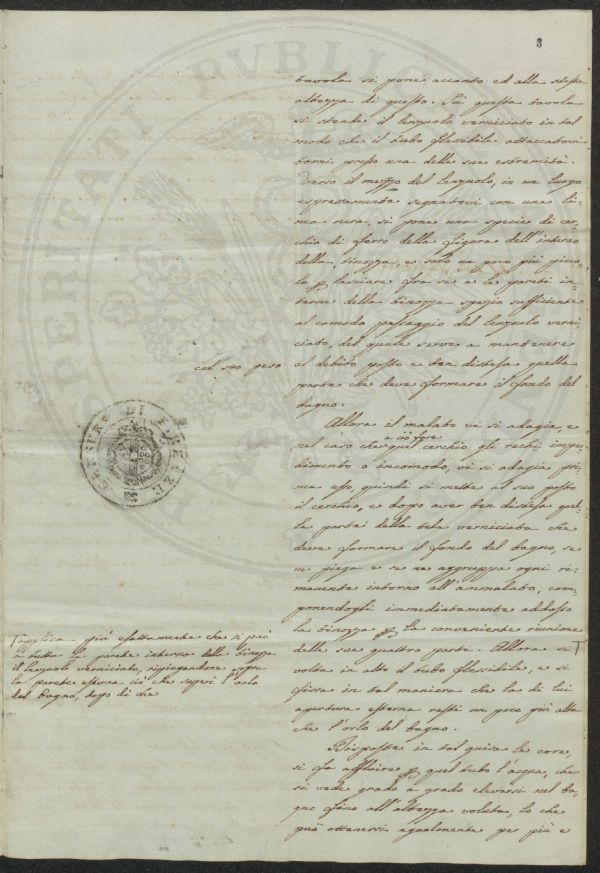 3
tavola si pone accanto ed alla stessa
altezza di questo. Su questa tavola
si stende il lenzuolo verniciato in tal
modo che il tubo flessibile attaccatovi
torni presso una delle sue estremità.
Verso il mezzo del lenzuolo, in un luogo
espressamente segnatovi con una li=
nea nera, si pone una specie di cer=
chio di ferro della figura dell'interno
della tinozza, e solo un poco più picco=
lo p lasciare fra se e le pareti in=
terne della tinozza spazio sufficiente
al comodo passaggio del lenzuolo verni=
ciato, del quale serve a mantenere
col suo peso
al debito posto e ben distesa quella
parte che deve formare il fondo del
bagno.
Allora il malato vi si adagia, e
nel caso che quel cerchio gli rechi impe=
a ciò fare
dimento o incomodo, vi si adagia pri=
ma esso, quindi si mette al suo posto
il cerchio, e dopo aver ben distesa quel=
la parte della tela verniciata che
deve formare il fondo del bagno, se
ne piega e se ne aggruppa ogni ri=
manente intorno all'ammalato, com=
ponendogli immediatamente addosso
la tinozza p la conveniente riunione
delle sue quattro parti. Allora si T
T applica più esattamente che si può
a tutta la parete interna della tinozza
il lenzuolo verniciato, ripiegandone sopra
la parete esterna ciò che superi l'orlo
del bagno, dopo di che
volta in alto il tubo flessibile, e si
fissa in tal maniera che la di lui
apertura esterna resti un poco più alta
che l'orlo del bagno.
Disposte in tal guisa le cose,
si fa affluire p quel tubo l'acqua, che
si vede grado a grado elevarsi nel ba=
gno fino all'altezza voluta, lo che
può ottenersi egualmente per più e
PREFETTURA DI FIRENZE
PROSPERITATI PVBLICAE